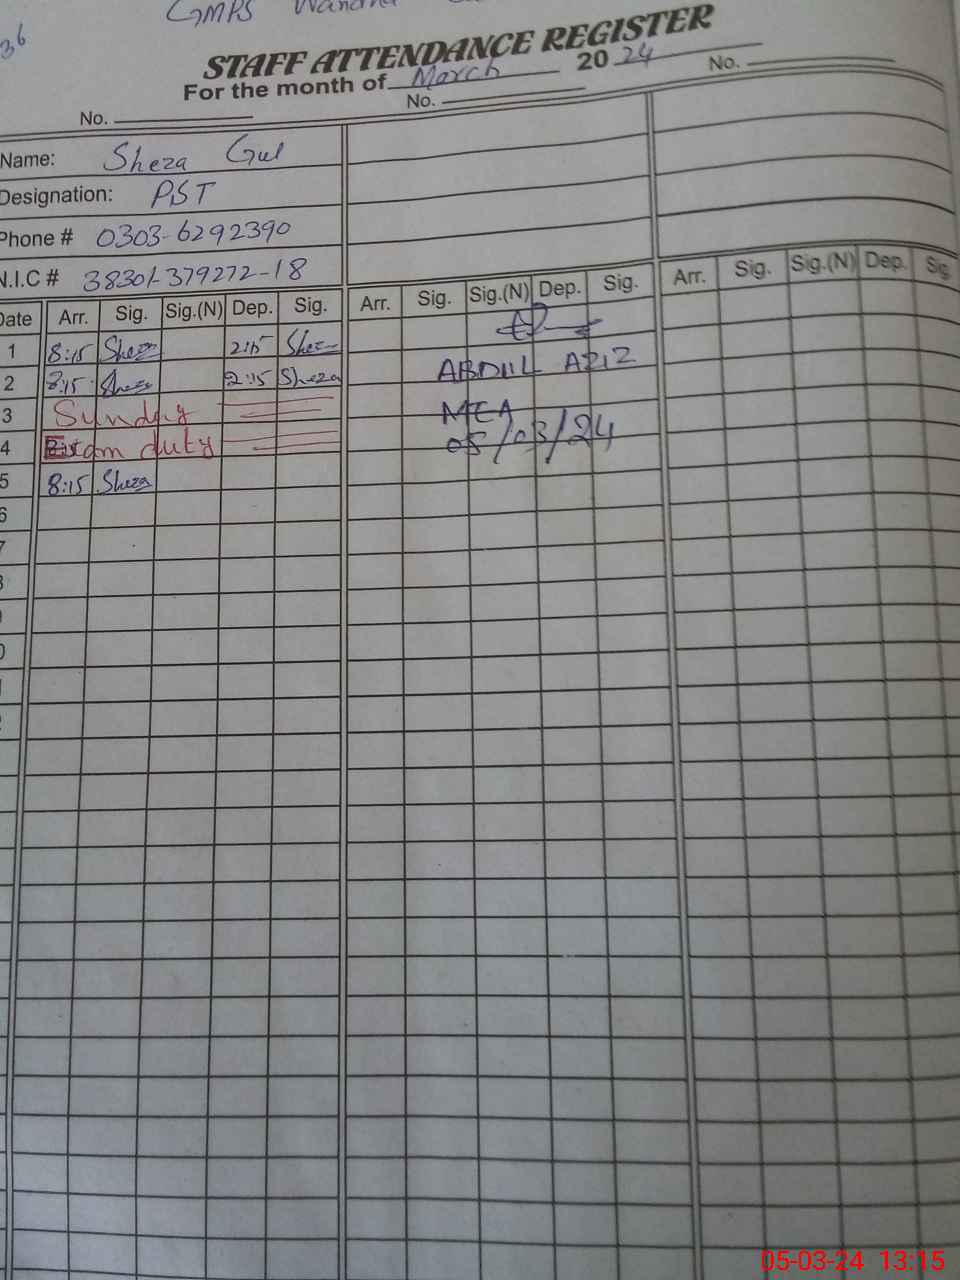 36
GMPS Wandha
STAFF ATTENDANCE REGISTER
For the month of March 2024
No. No. No.
Name: Sheza Gul
Designation: PST
Phone # 0303-6292390
N.I.C # 38301-379272-18
Date Arr. Sig. Sig.(N) Dep. Sig. Arr. Sig. Sig.(N) Dep. Sig. Arr. Sig. Sig.(N) Dep. Sig
1 8:15 Sheza 2:15 Sheza
2 8:15 Sheza 2:15 Sheza
ABDUL AZIZ
3 Sunday
MEA
4 Exam duty
05/03/24
5 8:15 Sheza
6
7
05-03-24 13:15